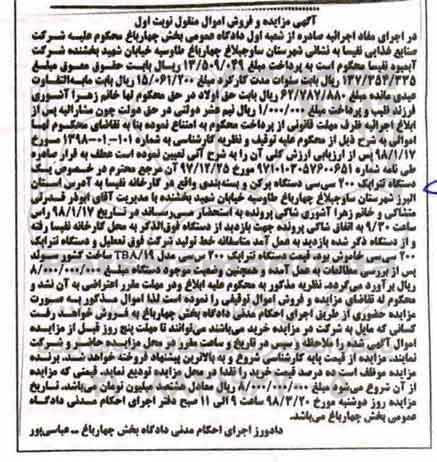 آگهی مزایده و فروش اموال منقول نوبت اول
در اجرای مفاد اجرائیه صادره از شعبه اول دادگاه عمومی بخش چهارباغ محکوم علیه شرکت
صنایع غذایی نفیسا به نشانی شهرستان ساوجبلاغ چهارباغ طاوسیه خیابان شهید بخشنده شرکت
آبمیوه نفیسا محکوم است به پرداخت مبلغ ۱۳/۵۰۹/۰۴۹ ریال بابت حقوق معوق مبلغ
۱۳۷/۳۵۴/۳۳۵ ریال بابت سنوات مدت کارکرد مبلغ ۱۵/۰۶۱/۲۰۰ ریال بابت مابه‌التفاوت
عیدی مانده مبلغ ۶۲/۷۸۷/۸۸۰ ریال بابت حق اولاد در حق محکوم لها خانم زهرا آشوری
فرزند و پرداخت مبلغ ۱/۰۰۰/۰۰۰ ریال نیم عشر دولتی در حق دولت چون مشارالیه پس از
ابلاغ اجرائیه ظرف مهلت قانونی از پرداخت محکوم به امتناع نموده بنا به تقاضای محکوم لها
اموالی به شرح ذیل از محکوم علیه توقیف و نظریه کارشناسی به شماره ۱۰۱-۰۱-۱۳۹۸ مورخ
۹۸/۱/۱۷ پس از ارزیابی ارزش کلی آن را به شرح آتی تعیین نموده است عطف به قرار صادره
طی نامه شماره ۹۷۱۰۱۰۳۵۷۶۰۰۶۵۱ مورخ ۹۷/۱۲/۲۵ آن مرجع محترم در خصوص یک
دستگاه تتراپک ۲۰۰ سی‌سی دستگاه پرکن و بسته‌بندی واقع در کارخانه نفیسا به آدرس استان
البرز شهرستان ساوجبلاغ چهارباغ طاوسیه خیابان شهید بخشنده با مدیریت آقای ابوذر قدرتی
و خانم زهرا آشوری شاکی پرونده به استحضار می‌رساند در تاریخ ۹۸/۱/۱۷ راس
ساعت ۹/۳۰ به اتفاق شاکی پرونده جهت بازدید از دستگاه فوق‌الذکر به محل کارخانه نفیسا رفته
و از دستگاه ذکر شده بازدید به عمل آمد متاسفانه خط تولید شرکت فوق تعطیل و دستگاه تتراپک
۲۰۰ سی‌سی خاموش بود. قیمت دستگاه تتراپک ۲۰۰ سی‌سی مدل TBA/۱۹ ساخت کشور سوئد
پس از بررسی مطالعات به عمل آمده و همچنین وضعیت موجود دستگاه مبلغ ۸/۰۰۰/۰۰۰/۰۰۰
ریال برآورد می‌گردد. نظریه مذکور به محکوم علیه ابلاغ ودر مهلت مقرر اعتراضی به آن نشد و
محکوم له تقاضای مزایده و فروش اموال توقیفی را نموده است لذا اموال مذکور به صورت
مزایده حضوری از طریق اجرای احکام مدنی دادگاه بخش چهارباغ به فروش خواهد رفت
کسانی که مایل به شرکت در مزایده خرید می‌باشند می‌توانند تا مهلت پنج روز قبل از مزایده
اموال آگهی شده را ملاحظه سپس در تاریخ و ساعت مقرر در محل مزایده حاضر و شرکت
نمایند. مزایده از قیمت پایه کارشناسی شروع و به بالاترین پیشنهاد فروخت خواهد شد. برنده
مزایده موظف است ده درصد قیمت خرید را نقدا در محل مزایده تودیع نماید. قیمتی که مزایده
از آن شروع می‌شود مبلغ ۸/۰۰۰/۰۰۰/۰۰۰ ریال معادل هشتصد میلیون تومان می‌باشد. تاریخ
مزایده روز دوشنبه مورخ ۹۸/۳/۲۰ ساعت ۹ الی ۱۱ صبح دفتر اجرای احکام مدنی دادگاه
عمومی بخش چهارباغ می‌باشد.
دادورز اجرای احکام مدنی دادگاه بخش چهارباغ ــ عباسی‌پور